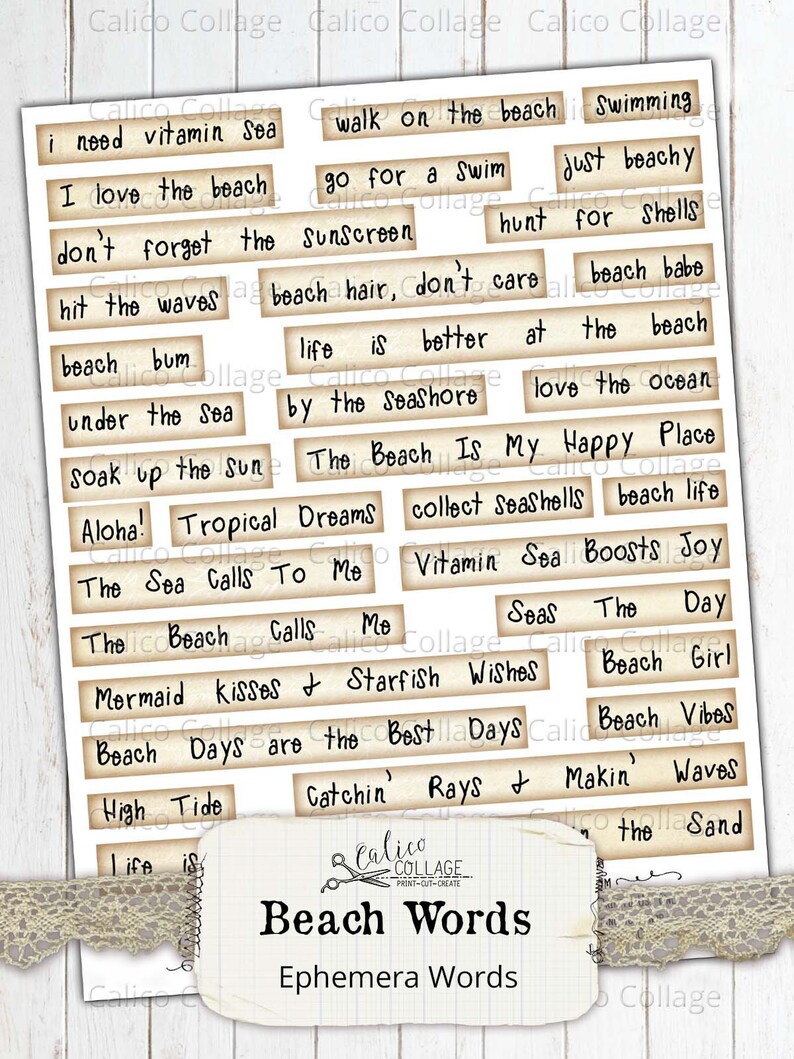 i need vitamin sea
walk on the beach
swimming
I love the beach
go for a swim
just beachy
don't forget the sunscreen
hunt for shells
hit the waves
beach hair, don't care
beach babe
beach bum
life is better at the beach
under the sea
by the seashore
love the ocean
soak up the sun
The Beach Is My Happy Place
Aloha!
Tropical Dreams
collect seashells
beach life
The Sea Calls To Me
Vitamin Sea Boosts Joy
The Beach Calls Me
Seas The Day
Mermaid Kisses & Starfish Wishes
Beach Girl
Beach Days are the Best Days
Beach Vibes
High Tide
Catchin' Rays & Makin' Waves
Life is
the Sand
Calico
COLLAGE
PRINT~CUT~CREATE
Beach Words
Ephemera Words
Calico Collage